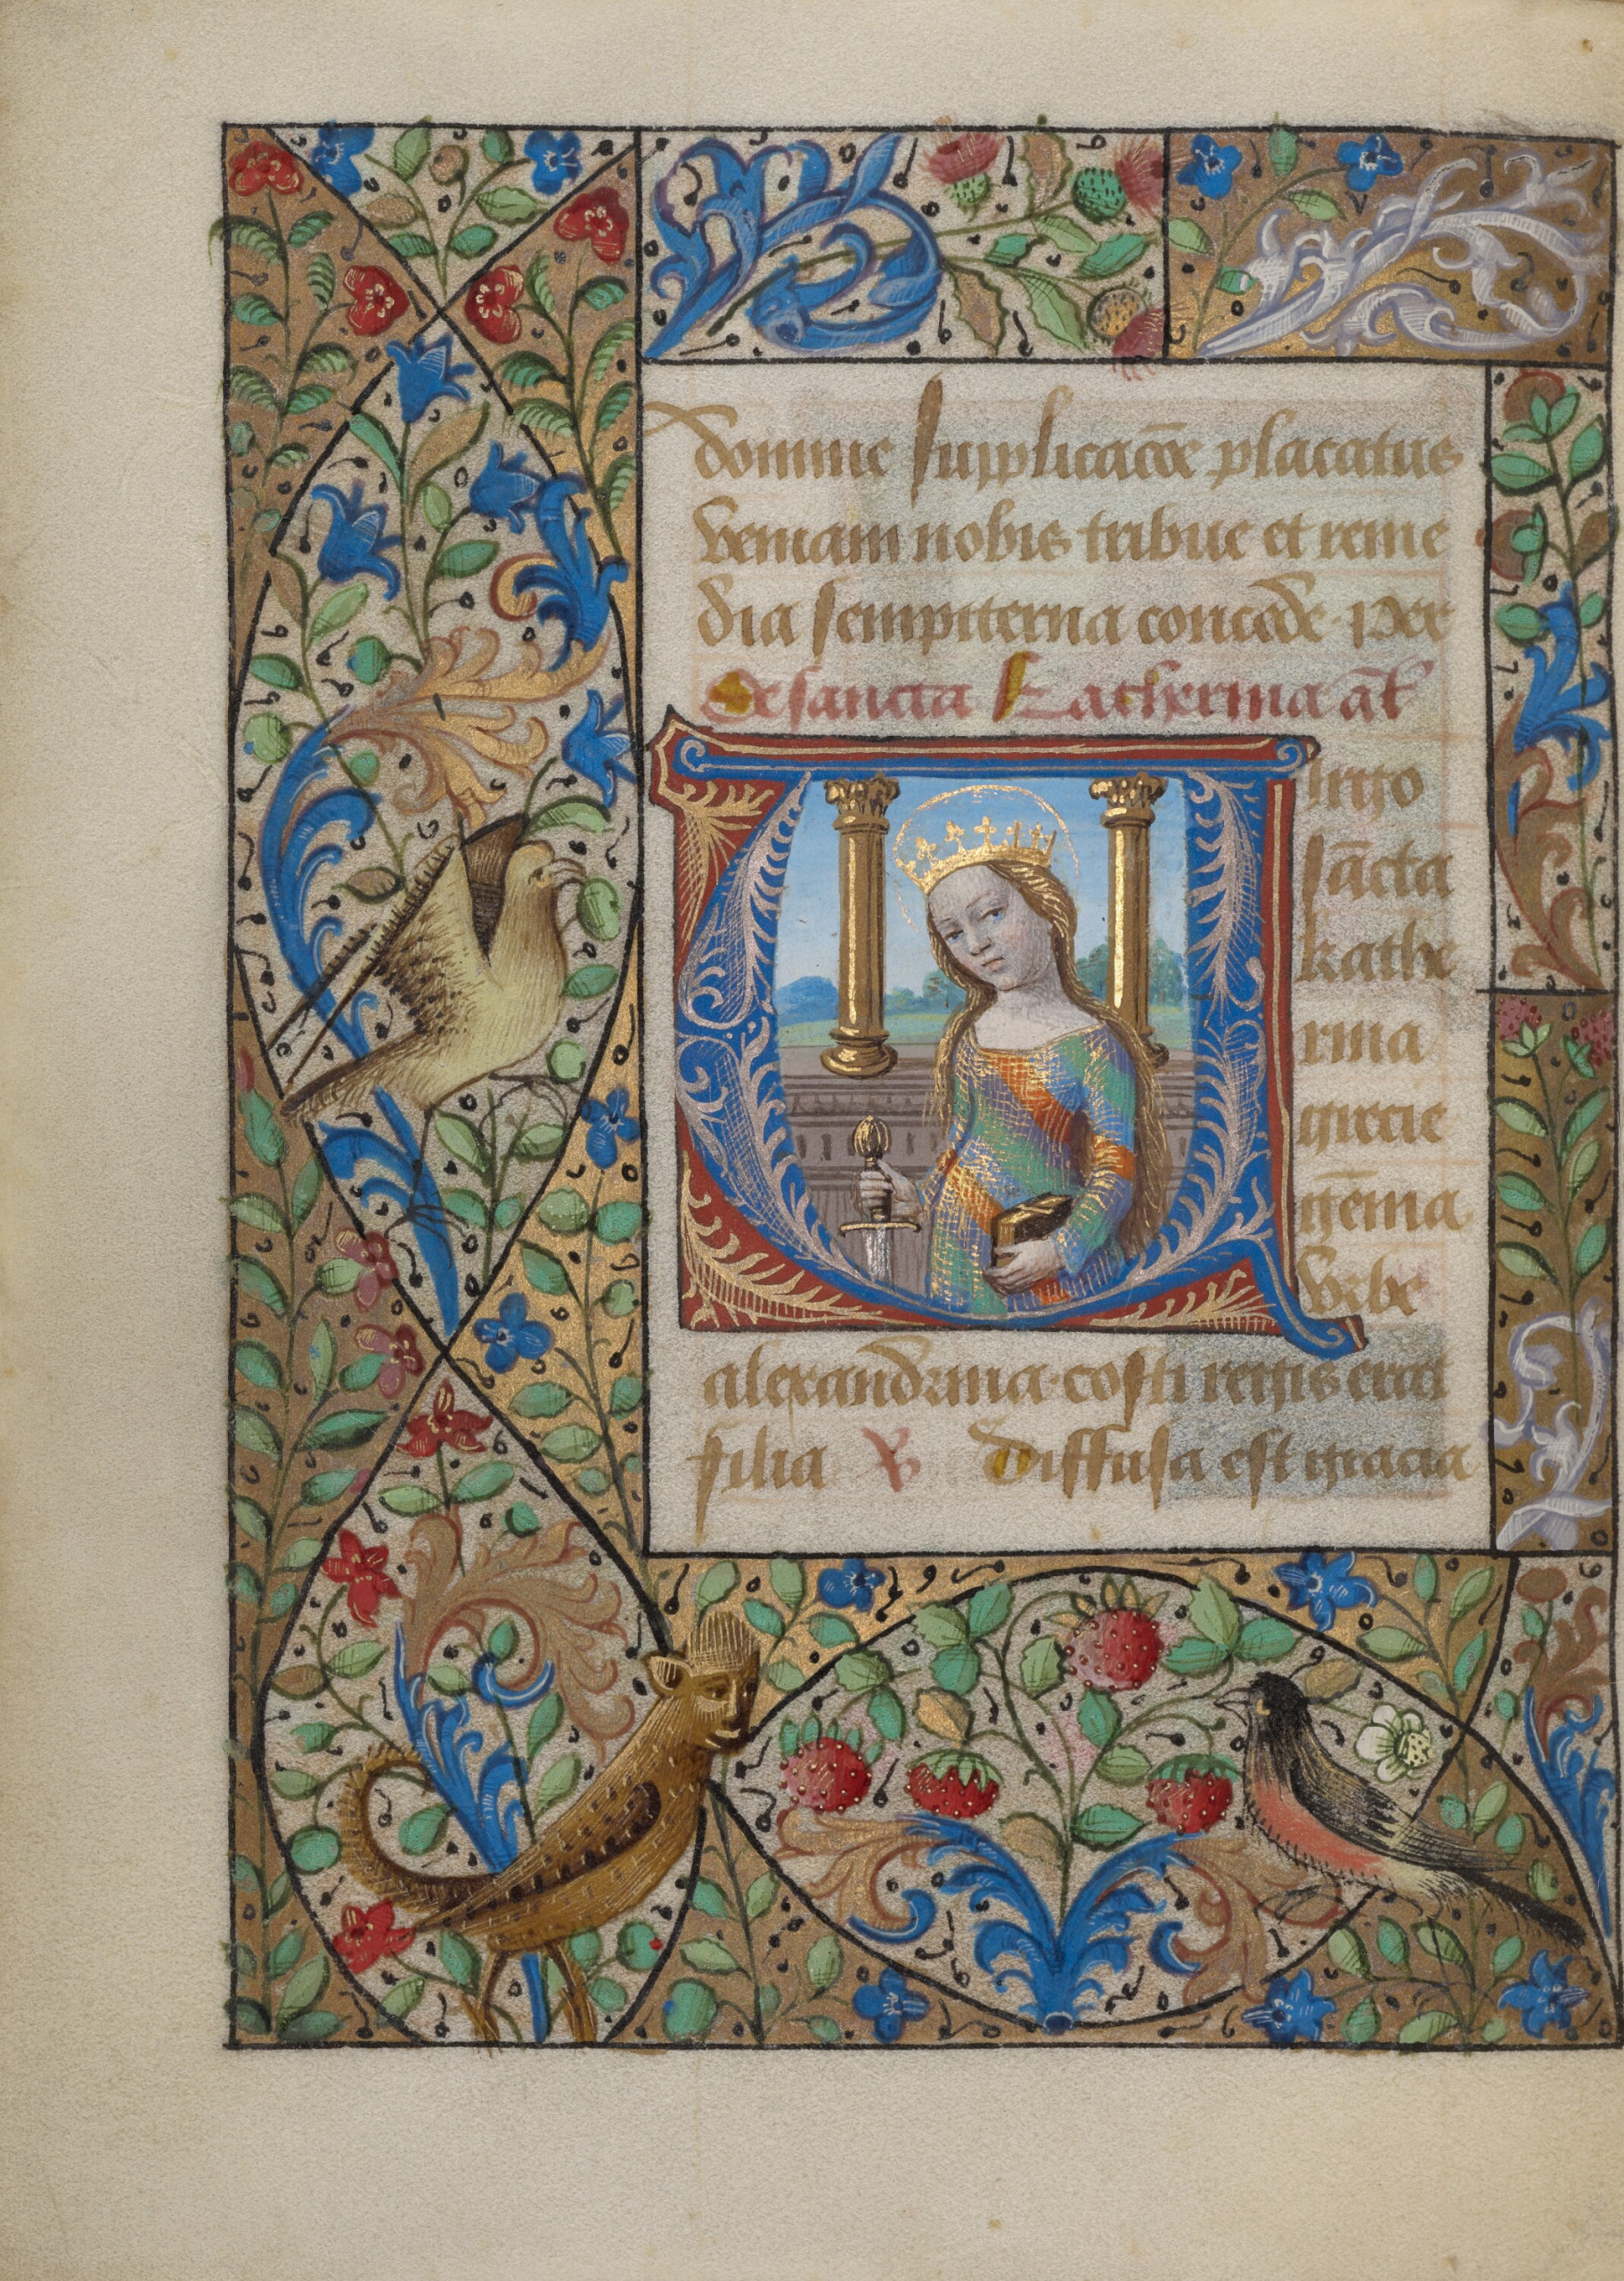 domine supplicacōe placatus
veniam nobis tribue et reme
dia sempiterna concede. Per
De sancta Katherina añ
Virgo
sācta
kathe
rina
grecie
gēma
vrbe
alexandrina. costi regis erat
filia ℣ Diffusa est gracia